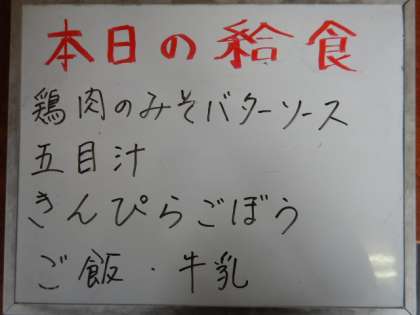 本日の給食
鶏肉のみそバターソース
五目汁
きんぴらごぼう
ご飯・牛乳